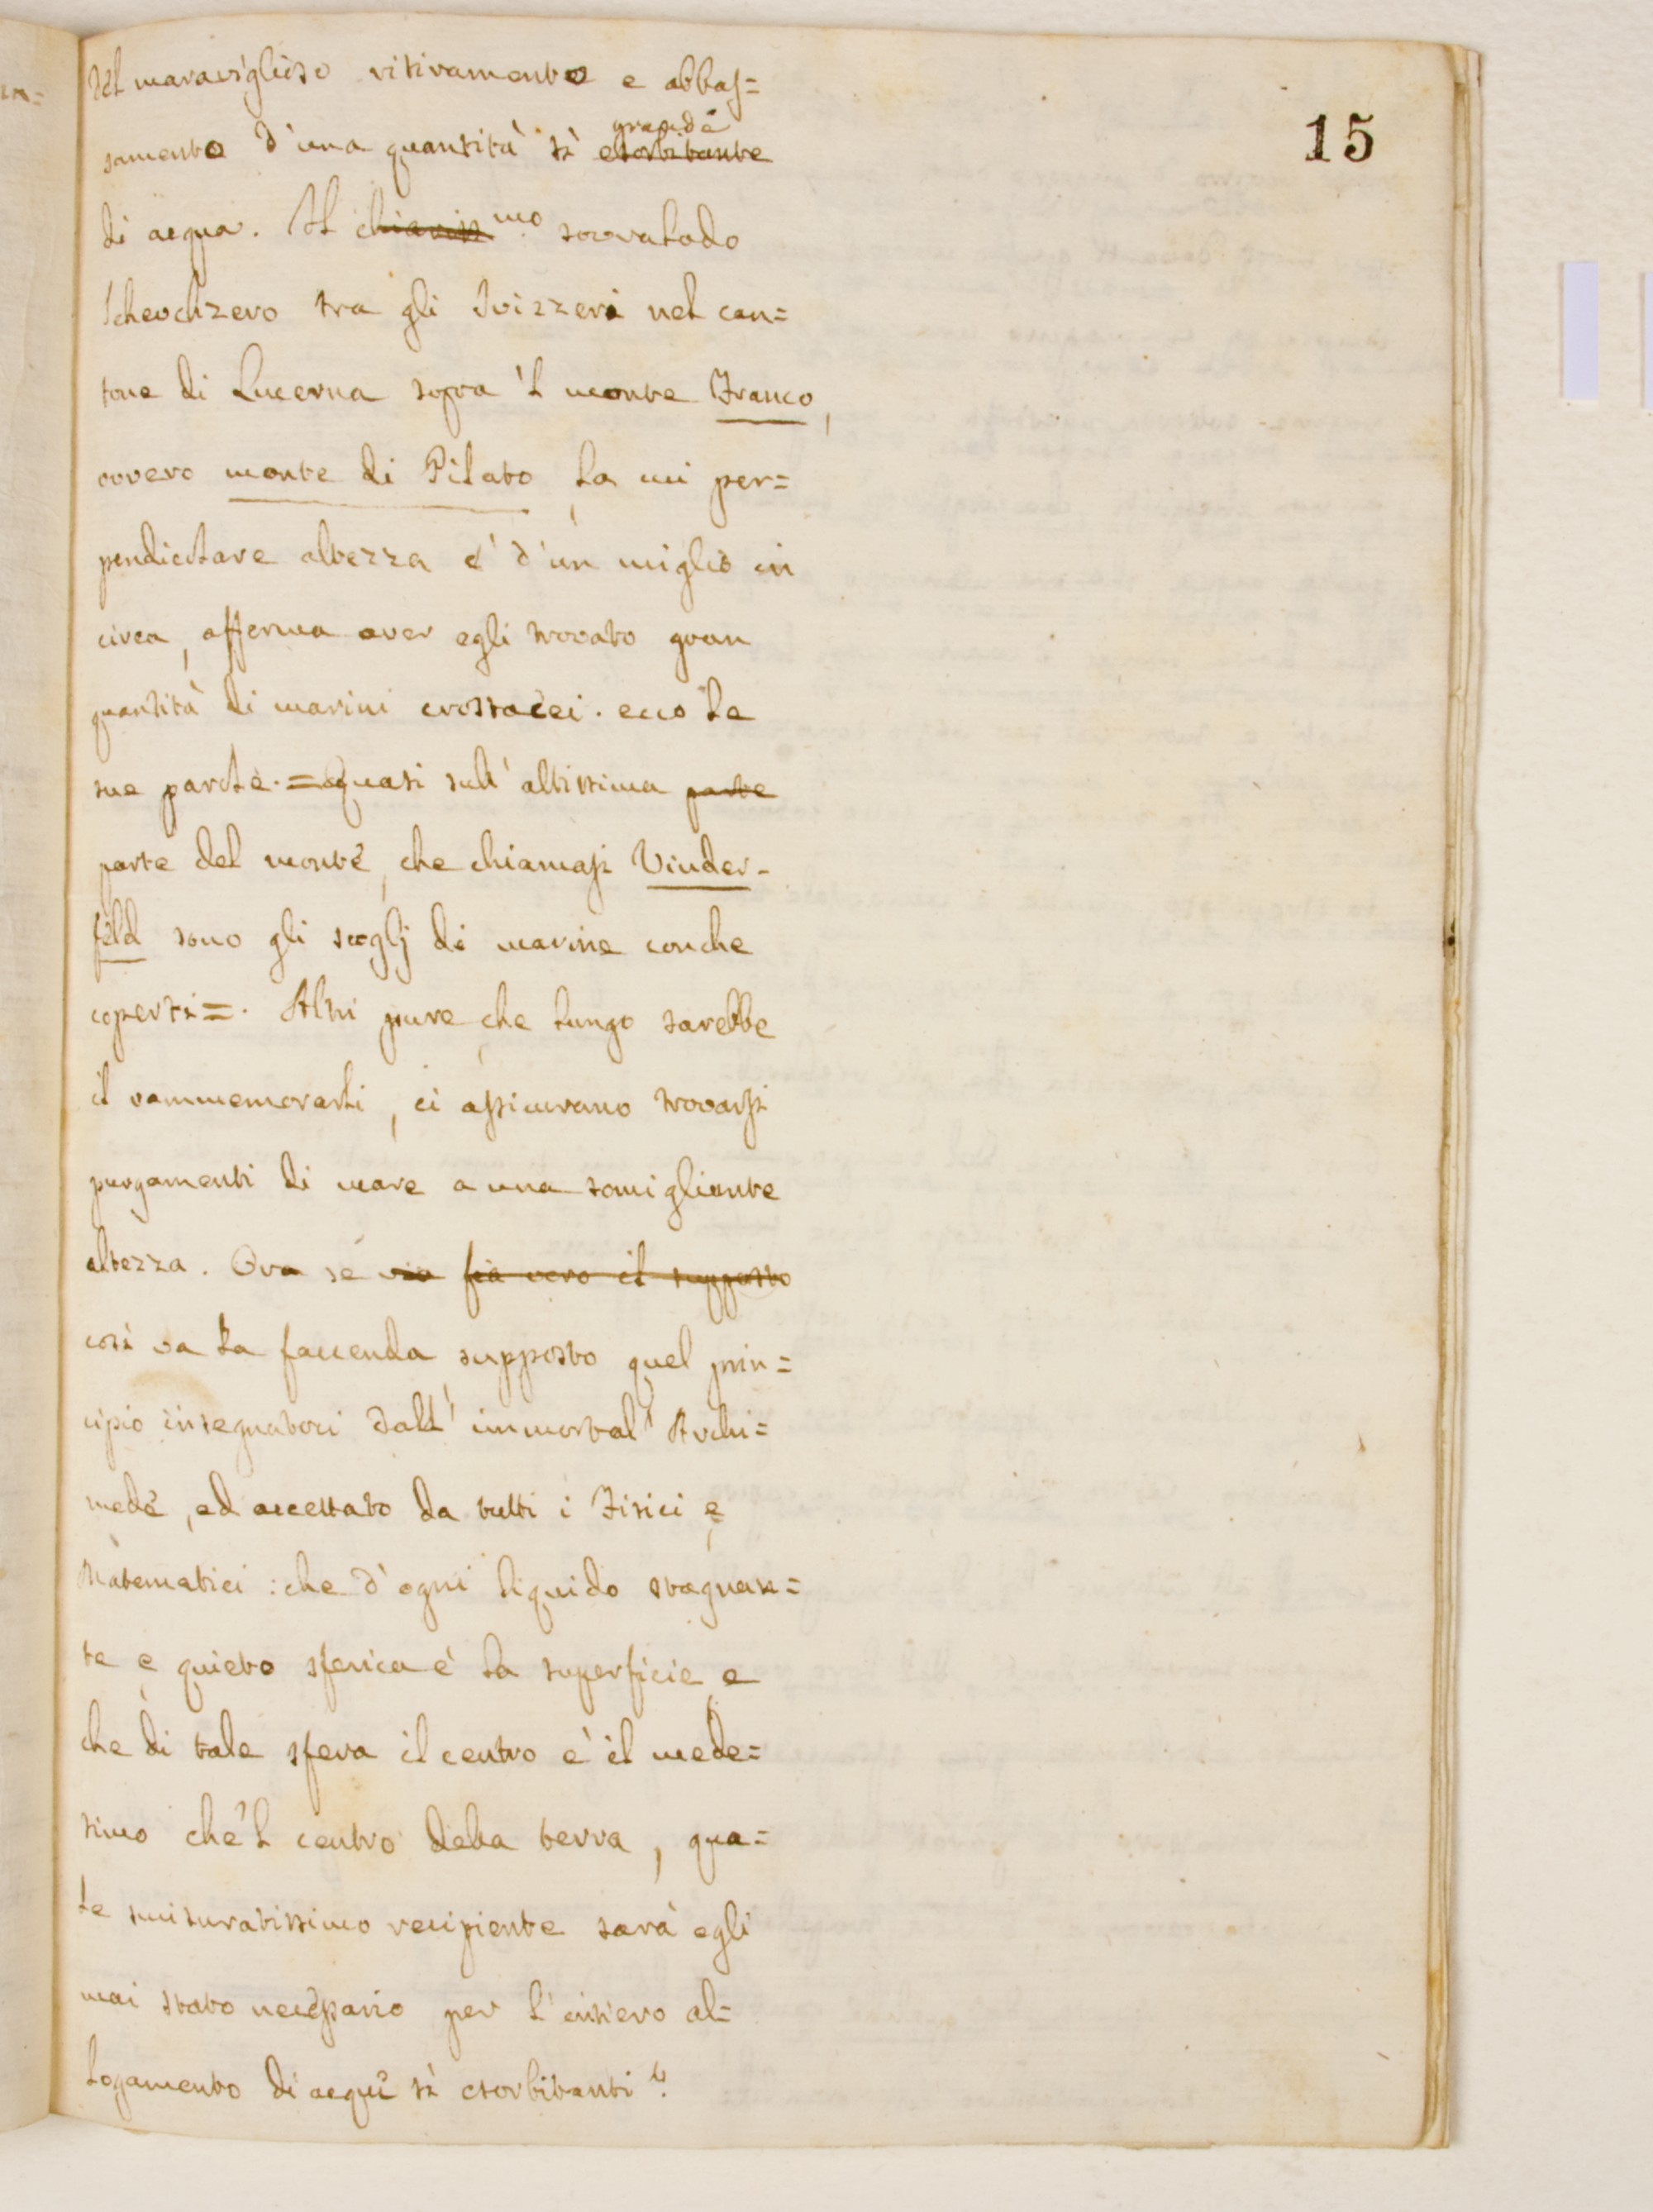 15
del maraviglioso ritiramento e abbas=
samento d'una quantità sì esorbitante grande
di acqua. Il chiariss.mo sovralodo
Scheochzero tra gli Svizzeri nel can=
tone di Lucerna sopra 'l monte Franco,
ovvero monte di Pilato, la cui per=
pendiculare altezza è d'un miglio in
circa, afferma aver egli trovato gran
quantità di marini crostacei. ecco le
sue parole. = Quasi sull' altissima parte
parte del monte, che chiamasi Vinder-
feld sono gli scoglj di marine conche
coperti =. Altri pure, che lungo sarebbe
il rammemorarli, ci assicurano trovarsi
purgamenti di mare a una somigliante
altezza. Ora se fia vero il supposto
così va la faccenda, supposto quel prin=
cipio insegnatoci dall' immortal' Archi=
mede, ed accettato da tutti i Fisici, e
Matematici: che d'ogni liquido stagnan=
te, e quieto sferica è la superficie, e
che di tale sfera il centro è il mede=
simo che 'l centro della terra, qua=
le smisuratissimo recipiente sarà egli
mai stato necessario per l'intiero al=
logamento di acque sì esorbitanti?